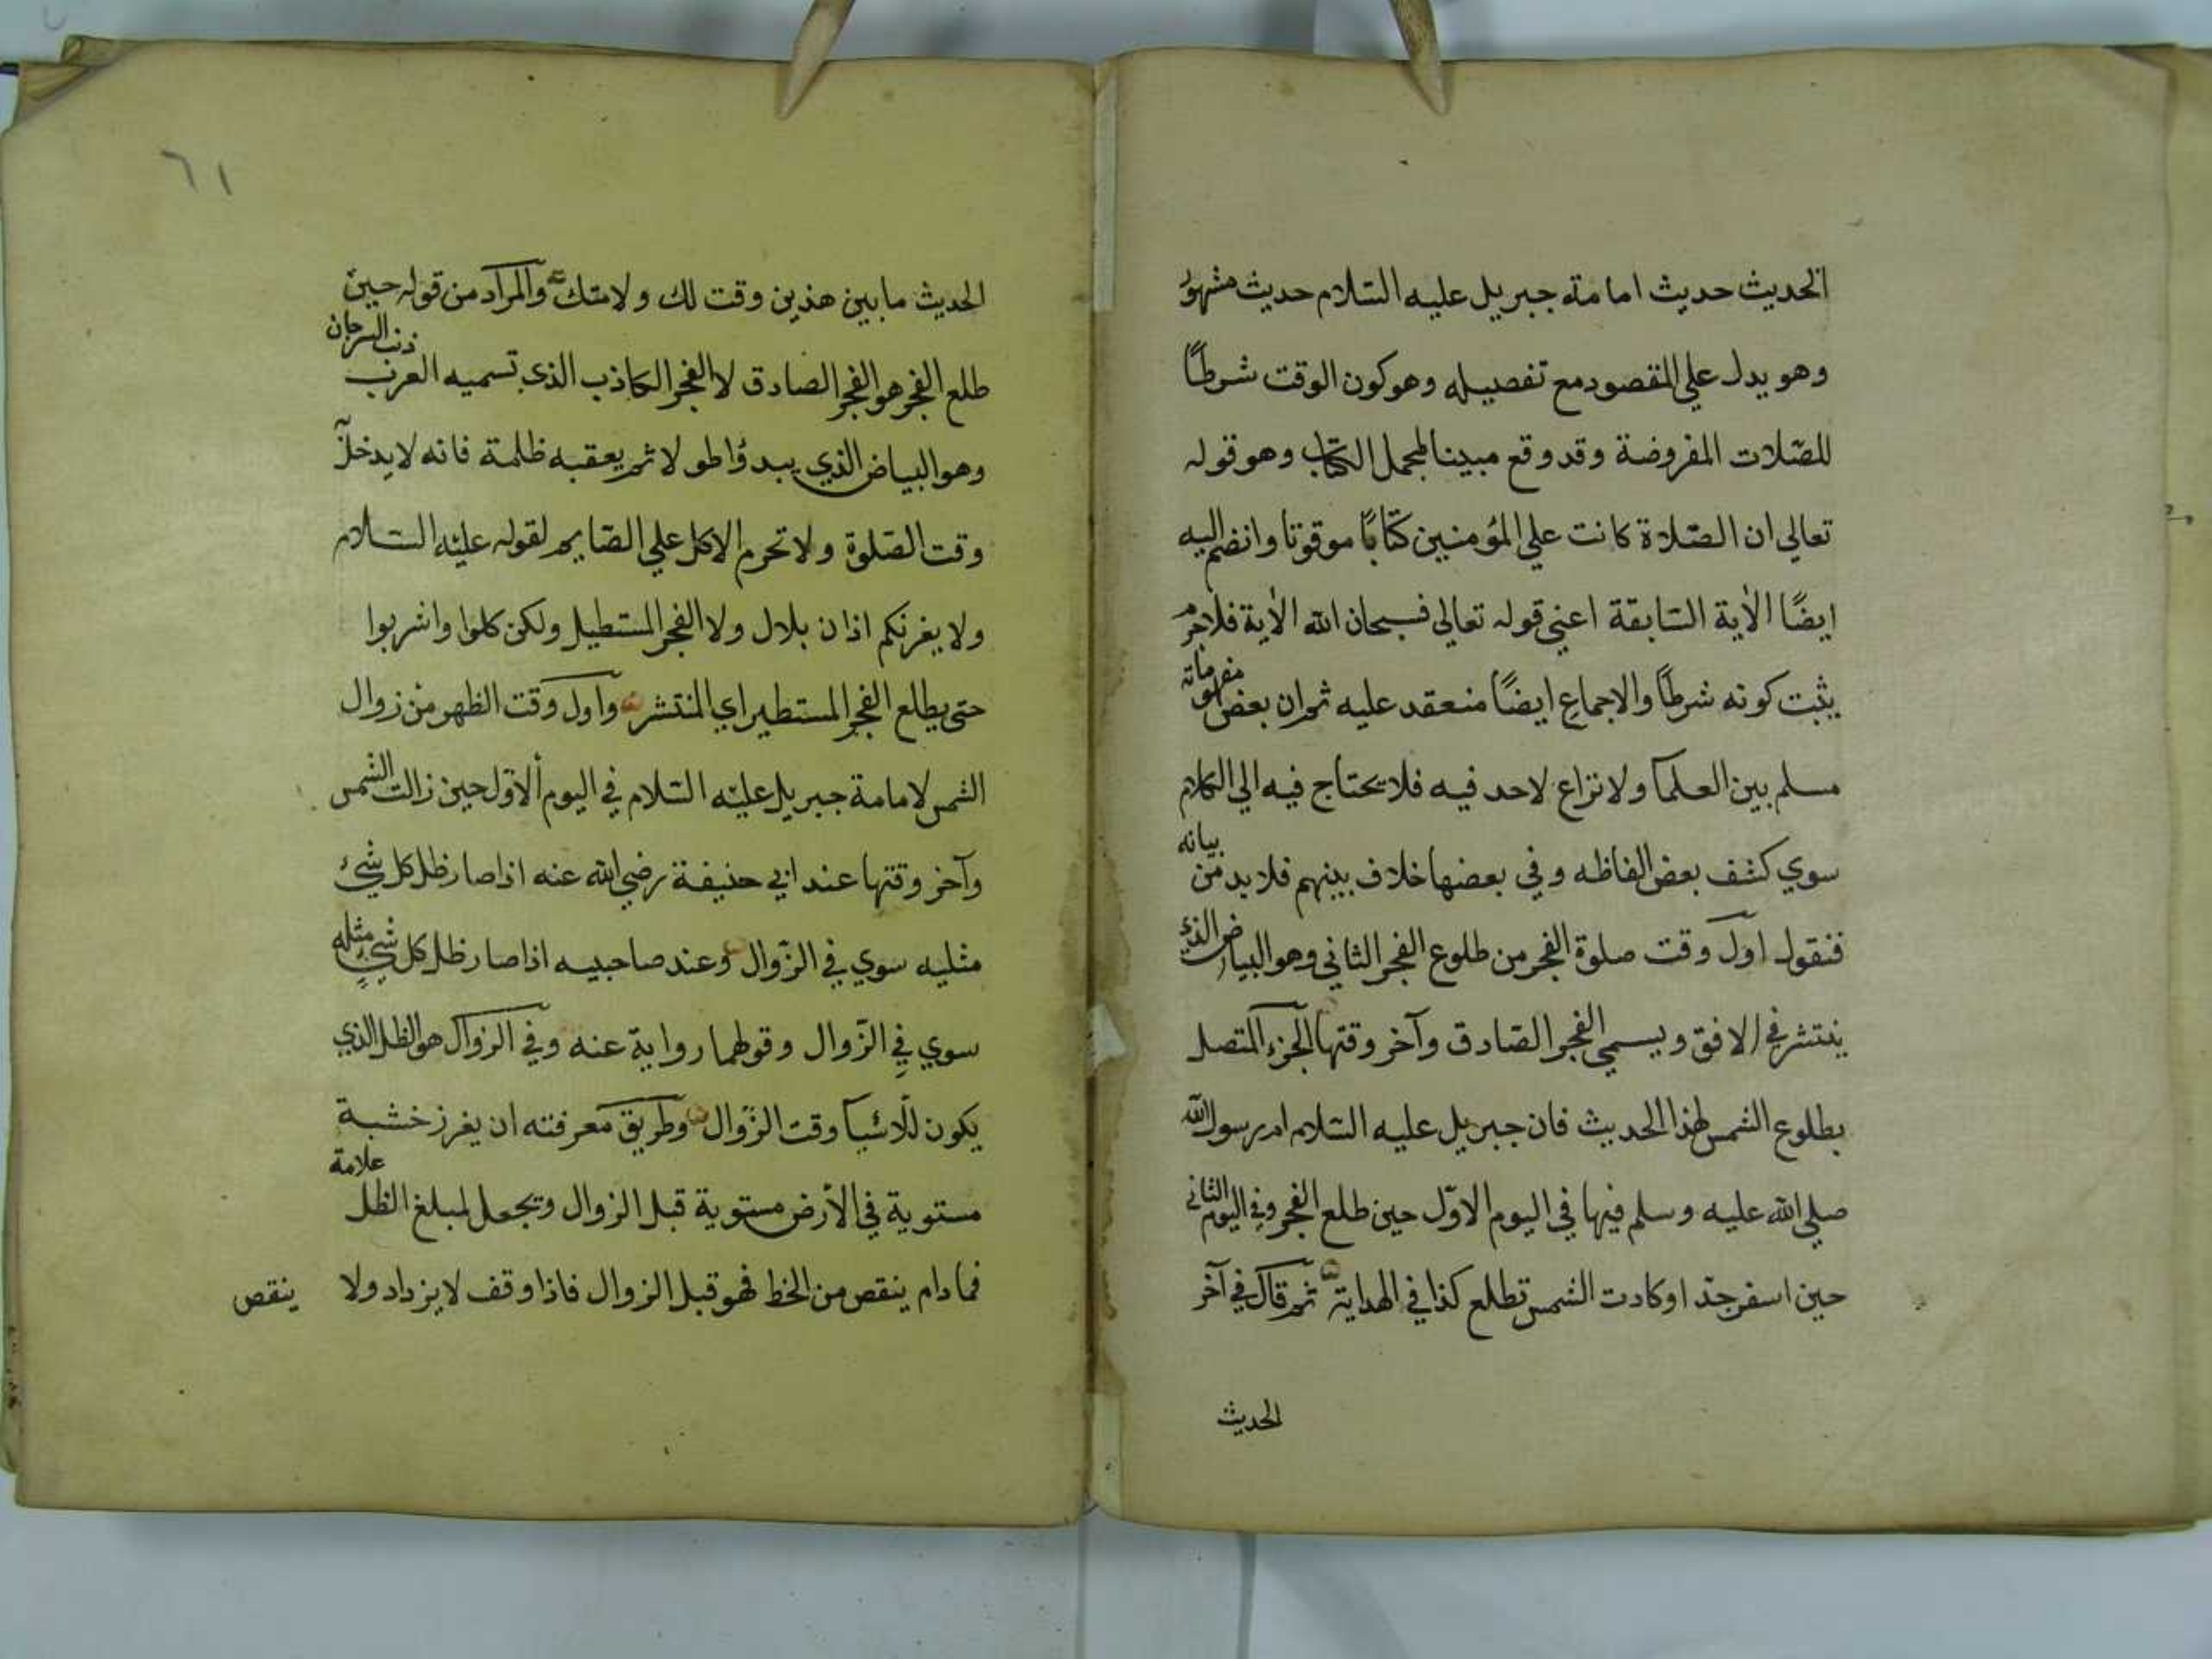 الحديث حديث امامة جبريل عليه السّلام حديث مشهور
وهو يدل علي المقصود مع تفصيله وهو كون الوقت شرطًا
للصّلات المفروضة وقد وقع مبينا لمجمل الكتاب وهو قوله
تعالي ان الصّلاة كانت علي المؤمنين كتابًا موقوتا وانضم اليه
ايضًا الأية السّابقة اعني قوله تعالي فسبحان الله الأية فلاجرم
يثبت كونه شرطًا والاجماع ايضًا منعقد عليه ثم ان بعض مفهوماته
مسلم بين العلمآ ولا نزاع لاحد فيه فلا يحتاج فيه الي الكلام
سوي كشف بعض الفاظه وفي بعضها خلاف بينهم فلا بد من بيانه
فنقول اول وقت صلوة الفجر من طلوع الفجر الثاني وهو البياض الذي
ينتشر في الافق ويسمي الفجر الصّادق وآخر وقتها الجزء المتصل
بطلوع الشمس لهذا الحديث فان جبريل عليه السّلام ام رسول الله
صلي الله عليه وسلم فيها في اليوم الاوّل حين طلع الفجر وفي اليوم الثاني
حين اسفر جدّ اوكادت الشمس تطلع كذا في الهداية ثم قال في آخر
الحديث
٦١
الحديث ما بين هذين وقت لك ولامتك والمراد من قوله حين
طلع الفجر هو الفجر الصادق لا الفجر الكاذب الذي تسميه العرب ذنب السرحان
وهو البياض الذي يبدؤا طولا ثم يعقبه ظلمة فانه لا يدخل
وقت الصّلوة ولا تحرم الاكل علي الصّايم لقوله عليه السّلام
ولا يغرنكم اذان بلال ولا الفجر المستطيل ولكن كلوا واشربوا
حتي يطلع الفجر المستطير اي المنتشر واول وقت الظهر من زوال
الشمس لامامة جبريل عليه السّلام في اليوم ألاوّل حين زالت الشمس
وآخر وقتها عند ابي حنيفة رضي الله عنه اذا صار ظل كل شيء
مثليه سوي في الزّوال وعند صاحبيه اذا صار ظل كل شيء مثله
سوي في الزّوال وقولهما رواية عنه وفي الزوال هو الظل الذي
يكون للّاشيآ وقت الزّوال وطريق معرفته ان يغرز خشبة
مستوية في الأرض مستوية قبل الزوال ويجعل لمبلغ الظل علامة
فما دام ينقص من الخط فهو قبل الزوال فاذا وقف لا يزداد ولا
ينقص